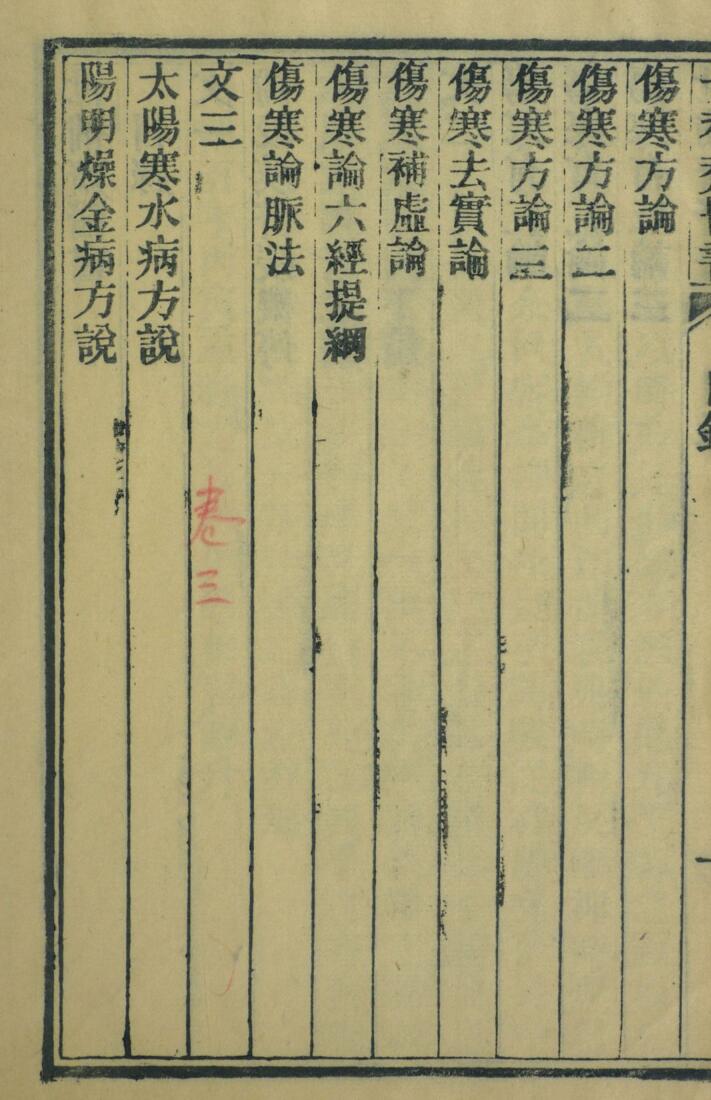 傷寒方論
傷寒方論二
傷寒方論三
傷寒去實論
傷寒補虛論
傷寒論六經提綱
傷寒論脈法
文三
卷三
太陽寒水病方說
陽明燥金病方說